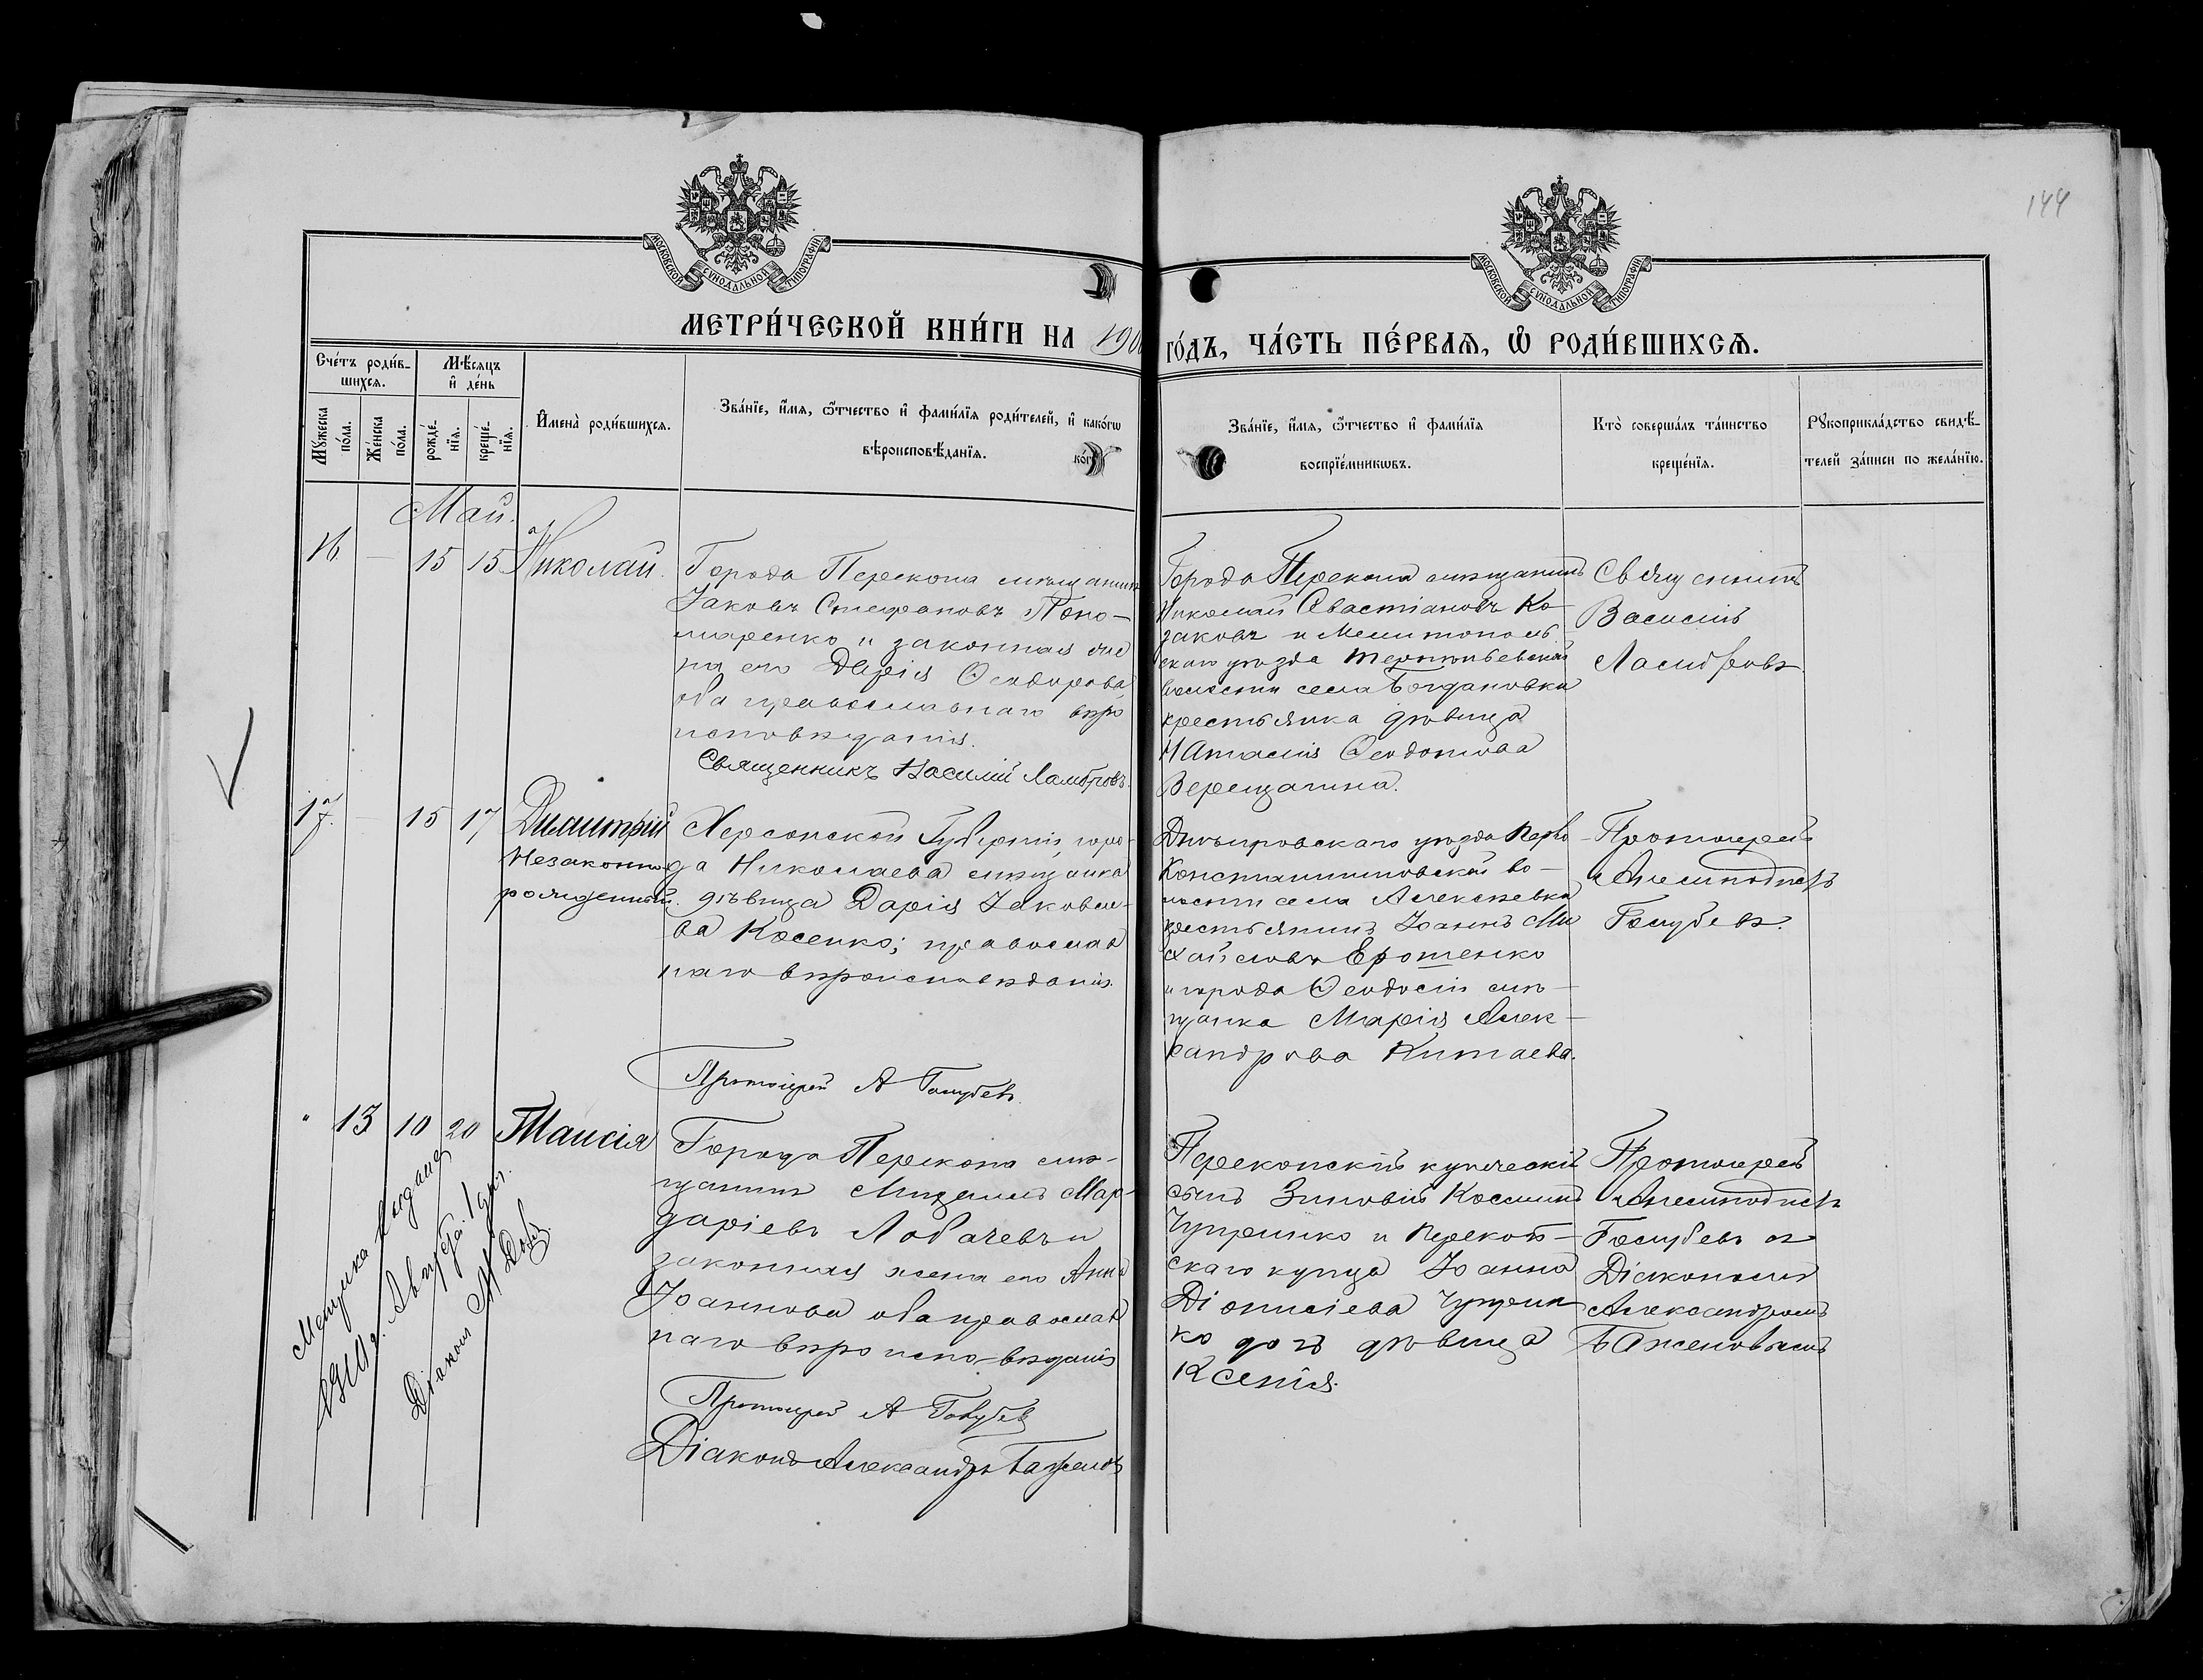 144
МОСКОВСКОЙ СѴНОДАЛЬНОЙ ТИПОГРАФІИ
МОСКОВСКОЙ СѴНОДАЛЬНОЙ ТИПОГРАФІИ
МЕТРИ́ЧЕСКОЙ КНИ́ГИ НА 190
ГО́ДЪ, ЧА́СТЬ ПЕ́РВАѦ, Ѡ҆ РОДИ́ВШИХСѦ.
Сче́тъ роди́в-
шихсѧ.
Мѣ́сѧцъ
и҆ де́нь
Мꙋ́жеска
по́ла.
Же́нска
по́ла.
рожде́-
нїѧ.
креще́-
нїѧ.
И҆мена̀ роди́вшихсѧ.
Зва́нїе, и҆́мѧ, ѻ҆́тчество и҆ фами́лїѧ роди́телей, и҆ како́гѡ
вѣроисповѣ́данїѧ.
Зва́нїе, и҆́мѧ, ѻ҆́тчество и҆ фами́лїѧ
воспрїе́мникѡвъ.
Кто̀ соверша́лъ та́инство
креще́нїѧ.
Рꙋкоприкла́дство свидѣ́-
телей за́писи по жела́нїю.
Май.
16 — 15 15 Николай.
Города Перекопа мѣщанинъ
Іаковъ Стефановъ Поно-
маренко и законная же
на его Дарія Ѳеодорова,
оба православнаго вѣро
исповѣданія.
Священникъ Василій Ламбровъ.
Города Перекопа мѣщанинъ
Николай Севастіановъ Ко-
заковъ и Мелитополь-
скаго уѣзда Терпѣньевской
волости села Богдановки
крестьянка дѣвица
Наталія Ѳеодотова
Верещагина.
Священникъ
Василій
Ламбровъ.
17. — 15 17 Димитрій
Незаконно
рожденный.
Херсонской Губерніи, горо-
да Николаева мѣщанка
дѣвица Дарія Іаковле-
ва Косенко; православ
наго вѣроисповѣданія.
Протоіерей А Голубевъ.
Днѣпровскаго уѣзда Перво
Константиновской во-
лости села Алексѣевки
крестьянинъ Іоаннъ Ми
хайловъ Ерошенко
и города Ѳеодосіи мѣ-
щанка Марія Алек-
сандрова Китаева.
Протоіерей
Анемподистъ
Голубевъ.
" 13 10 20 Таисія
Города Перекопа мѣ-
щанинъ Михаилъ Мар-
даріевъ Лобачевъ и
законная жена его Анна
Іоаннова оба православ
наго вѣроисповѣданія
Протоіерей А Голубевъ
Діаконъ Александръ Баженовъ
Перекопскій купеческій
сынъ Зиновій Косминъ
Чупринко и Перекоп-
скаго купца Іоанна
Діонисіева Чуприн
ко дочь дѣвица
Ксенія.
Протоіерей
Анемподистъ
Голубевъ съ
Діакономъ
Александромъ
Баженовымъ
Метрика выдана
Августа 1 дня.
Діаконъ